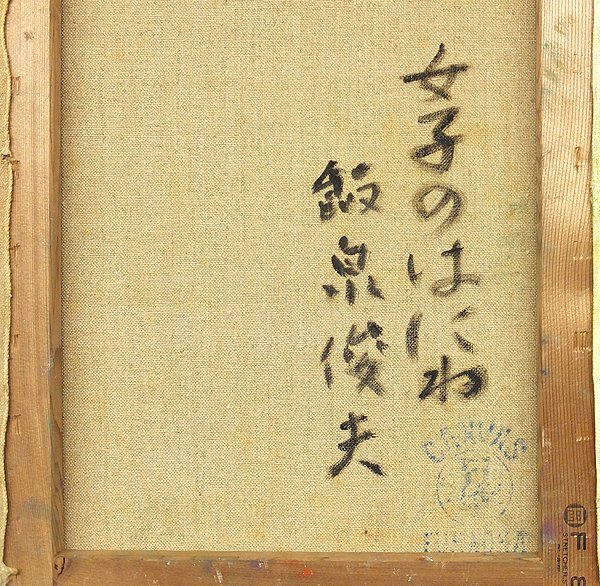 女子のはにわ
飯泉俊夫
CANVAS
F 8
STRETCHERS